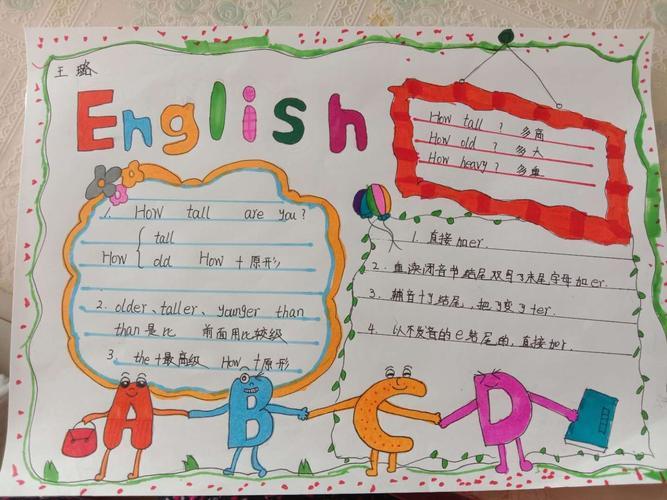 王璐
English
How tall? 多高
How old? 多大
How heavy? 多重
1. How tall are you?
tall
How { old How + 原形
2. older、taller、younger than
than是比 前面用比较级
3. the+最高级 How +原形
1. 直接加er.
2. 重读闭音节结尾双写了末尾字母加er.
3. 辅音+y结尾，把y变了ier.
4. 以不发音的e结尾的，直接加r.
A B C D